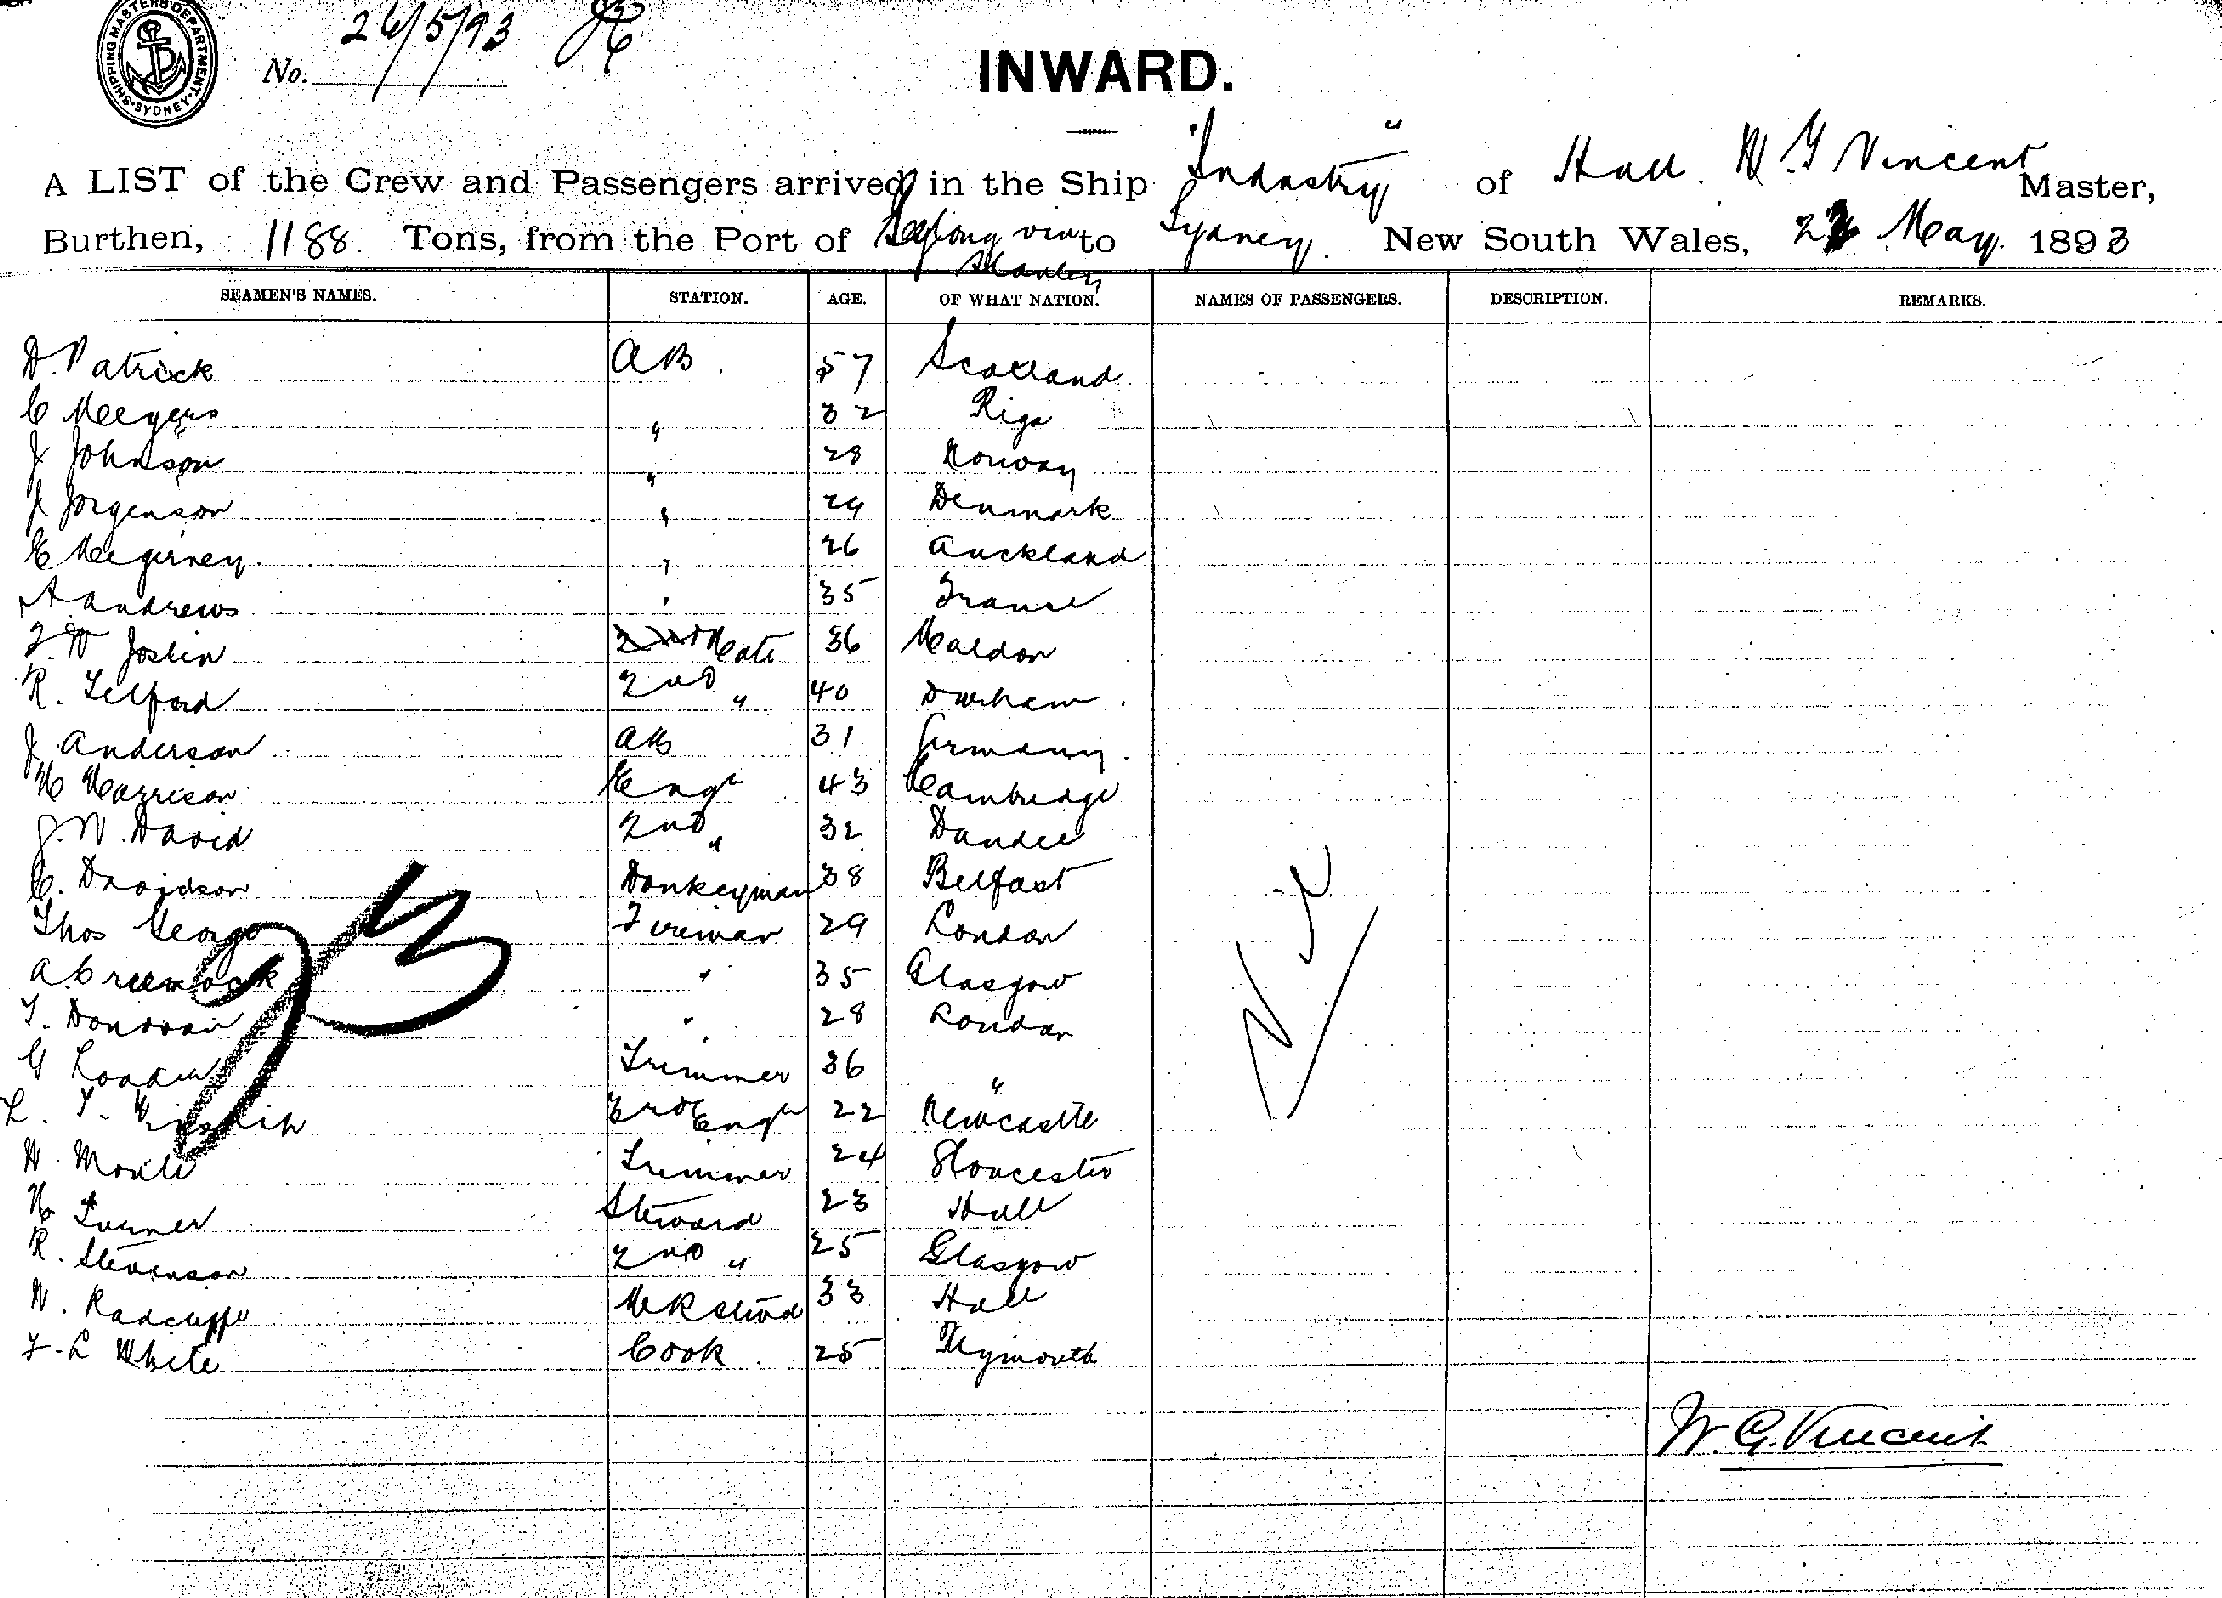 SHIPPING MASTERS DEPARTMENT SYDNEY
No. 26/5/93
INWARD.
A LIST of the Crew and Passengers arrived in the Ship "Industry" of Hull W G Vincent Master,
Burthen, 1188 Tons, from the Port of via Stanley to Sydney New South Wales, May 1893
SEAMEN'S NAMES. STATION. AGE. OF WHAT NATION. NAMES OF PASSENGERS. DESCRIPTION. REMARKS.
D. Patrick AB 57 Scotland
C Meyers " 32 Riga
J Johnson " 28 Norway
J Jorgenson " 29 Denmark
E " 26 Auckland
A. Andrews " 35 France
F. W Joslin Mate 36 Maldon
R. Telford 2nd " 40 Durham
J Anderson AB 31 Germany
H Harrison Engr 43 Cambridge
J. W. David 2nd " 32 Dundee
C. Davidson Donkeyman 38 Belfast
Thos George Fireman 29 London
A Greenock " 35 Glasgow
T. Donovan " 28 London
G Trimmer 36 "
L. T. 3rd Engr 22 Newcastle
W. Trimmer 24 Gloucester
H Turner Steward 23 Hull
R. Stevenson 2nd " 25 Glasgow
W. Radcliffe M R Stwd 33 Hull
F. L White Cook 25 Plymouth
93
Nil
W. G. Vincent